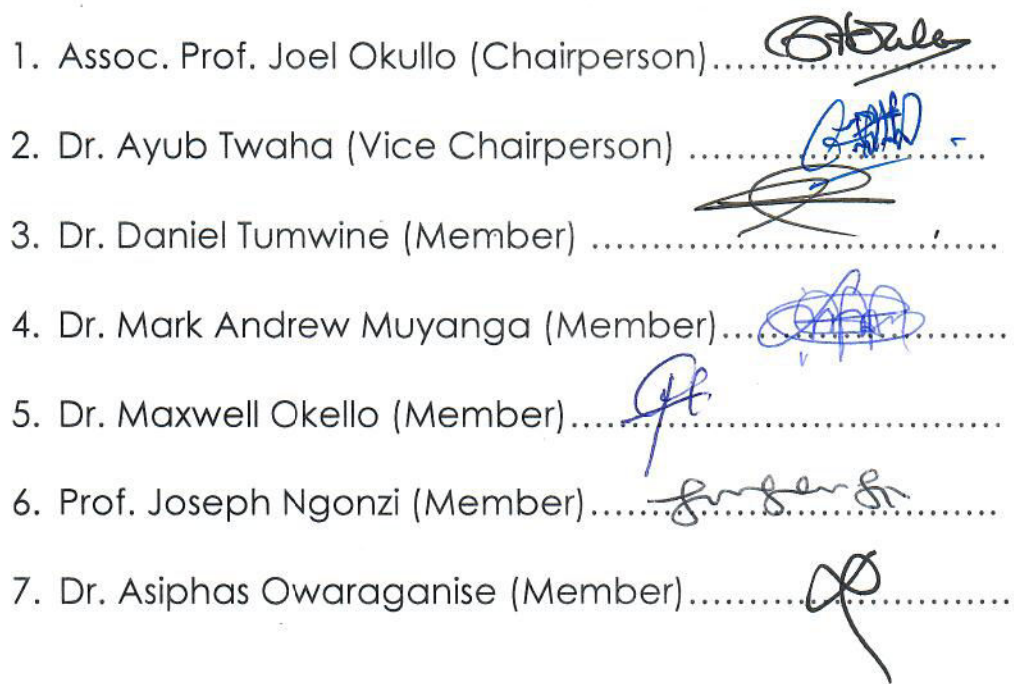 1. Assoc. Prof. Joel Okullo (Chairperson)..........................
2. Dr. Ayub Twaha (Vice Chairperson) ..........................
3. Dr. Daniel Tumwine (Member) ...................................
4. Dr. Mark Andrew Muyanga (Member)..........................
5. Dr. Maxwell Okello (Member)......................................
6. Prof. Joseph Ngonzi (Member)....................................
7. Dr. Asiphas Owaraganise (Member)............................